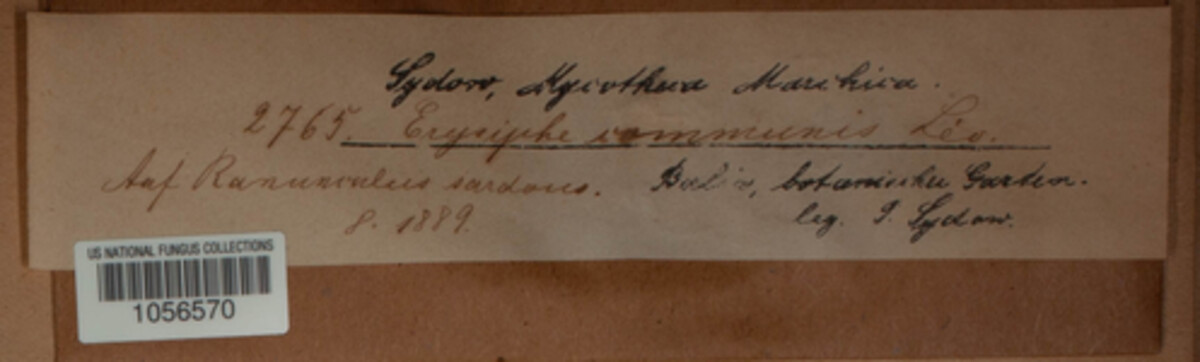 Sydow, Mycotheca Marchica.
2765. Erysiphe communis Lév.
Auf Ranunculus sardous. Berlin, botanischer Garten.
8. 1889. leg. P. Sydow.
US NATIONAL FUNGUS COLLECTIONS
1056570